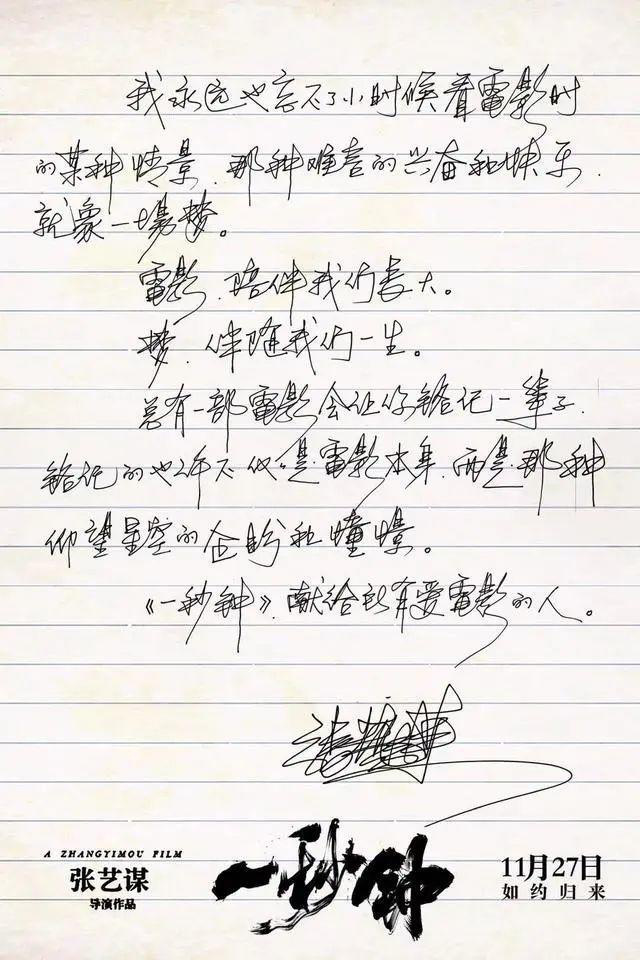 我永远也忘不了小时候看電影时
的某种情景,那种难言的兴奋和快乐,
就象一场梦。
電影,陪伴我们长大。
梦,伴随我们一生。
总有一部電影会让你铭记一辈子,
铭记的也许不仅是電影本身,而是那种
仰望星空的企盼和憧憬。
《一秒钟》,献给所有爱電影的人。
A ZHANGYIMOU FILM
张艺谋
导演作品
一秒钟
11月27日
如约归来